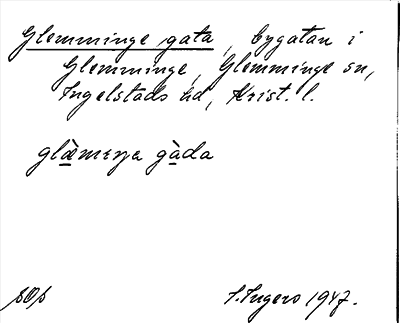 Glemminge gata, bygatan i
Glemminge, Glemminge sn,
Ingelstads hd, Krist. l.
glæ̀mıŋa gàda
S. Ingers 1947.